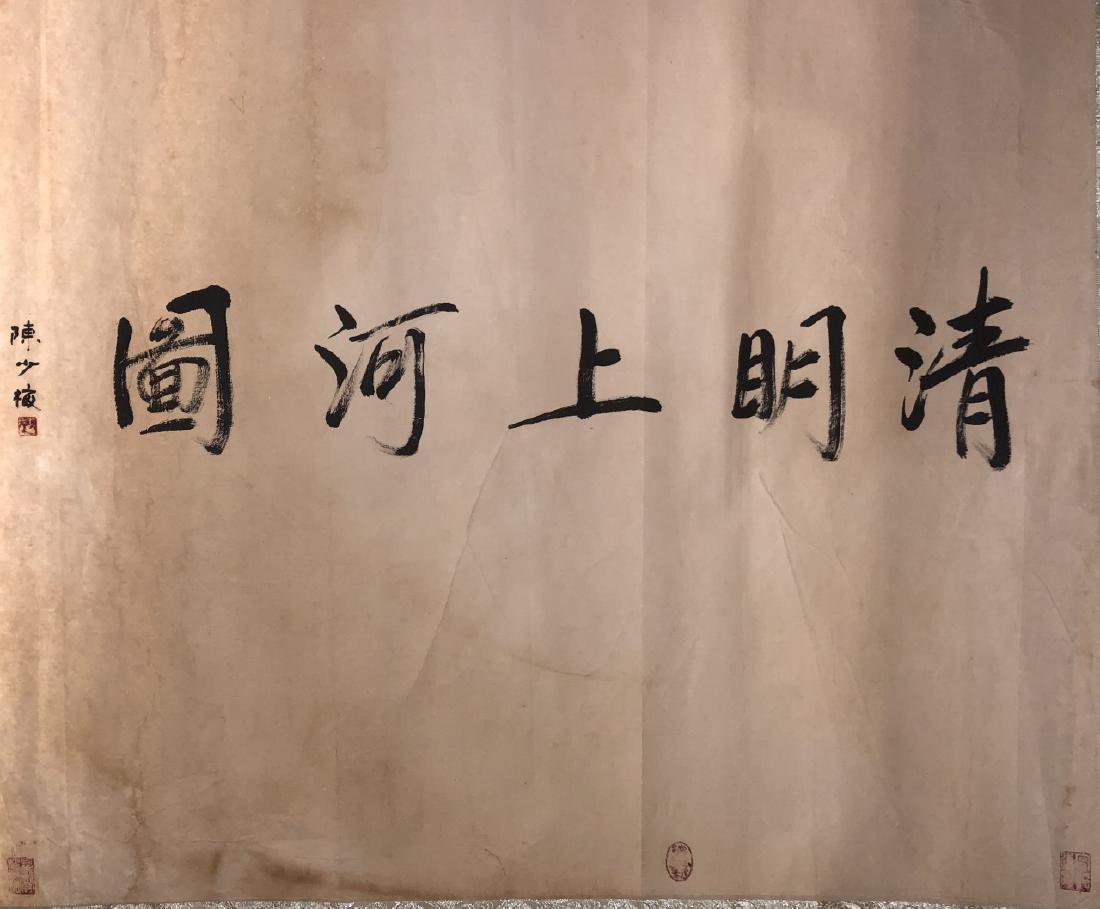 清明上河圖
陳少梅